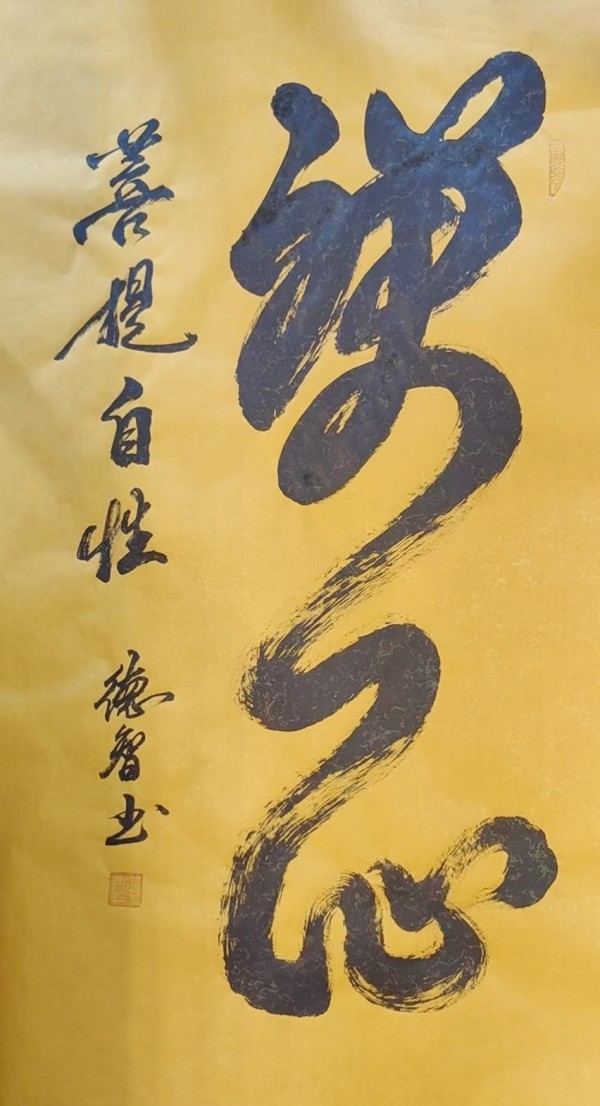 禅心
菩提自性 德智书